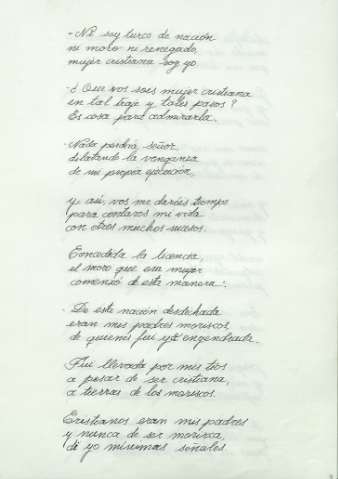 - Ni soy turco de nación
ni moro ni renegado,
mujer cristiana soy yo.
- ¿Que vos sois mujer cristiana
en tal traje y tales pasos?
Es cosa para admirarla.
- Nada perdéis señor
dilatando la venganza
de mi propia ejecución,
y, así, vos me daréis tiempo
para contaros mi vida
con otros muchos sucesos.
Concedida la licencia,
el moro que era mujer
comenzó de esta manera:
- De esta nación desdichada
eran mis padres moriscos,
de quienes fui yo engendrada.
Fui llevada por mis tíos
a pesar de ser cristiana,
a tierras de los moriscos.
Cristianos eran mis padres
y nunca de ser morisca,
di yo mínimas señales.